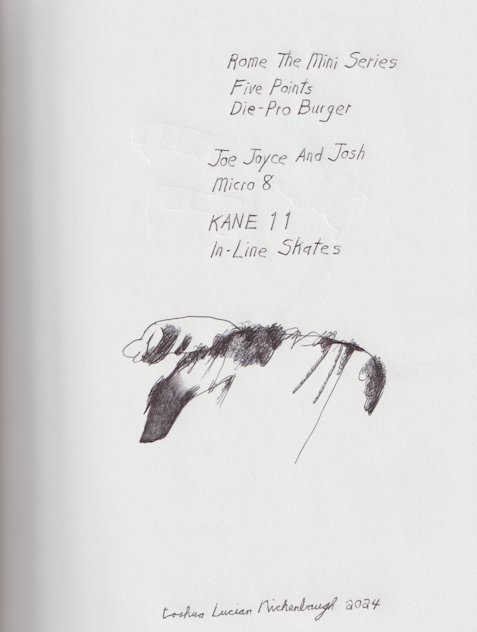 Rome The Mini Series
Five Points
Die-Pro Burger
Joe Joyce And Josh
Micro 8
KANE 11
In-Line Skates
Joshua Lucian 2024